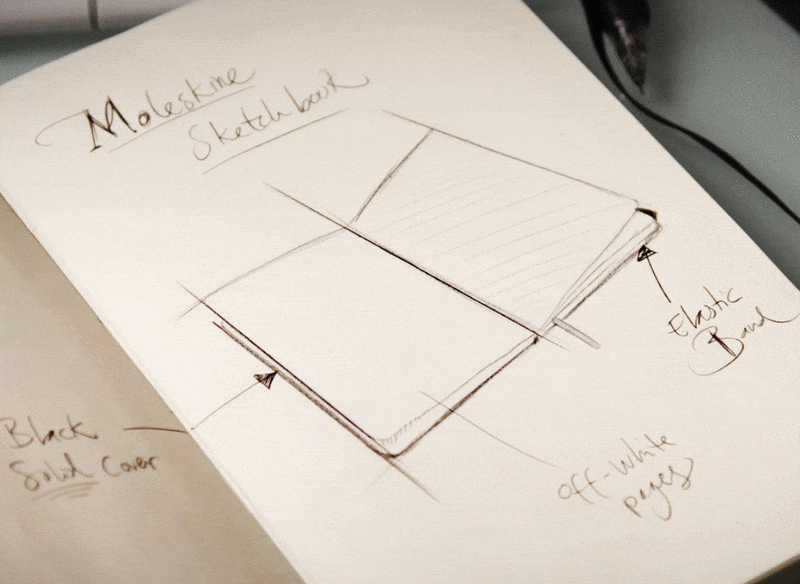 Moleskine
Sketchbook
Elastic
Band
Black
Solid Cover
off-White
pages